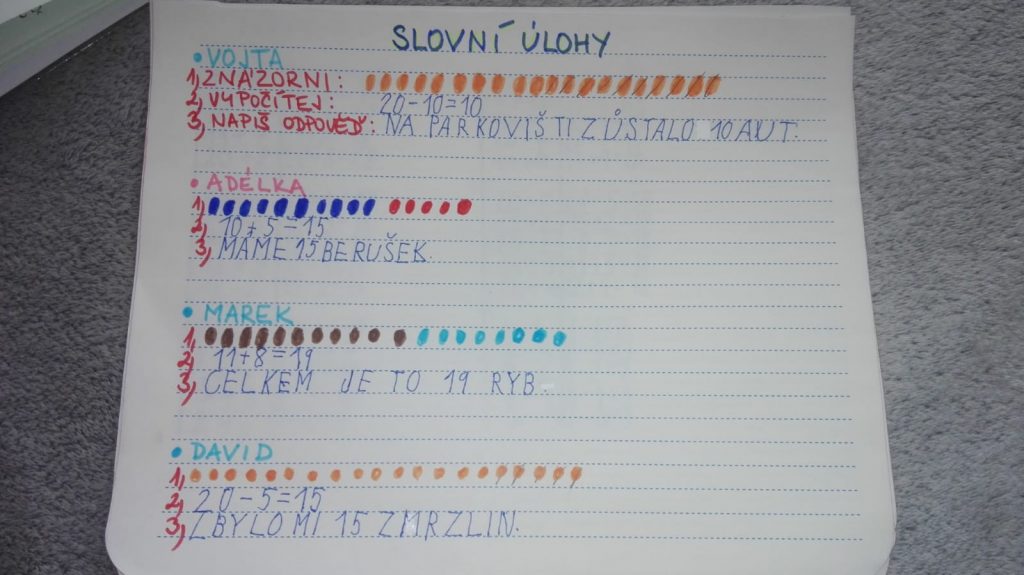 SLOVNÍ ÚLOHY
• VOJTA
1, ZNÁZORNI:
2, VYPOČÍTEJ: 20-10=10
3, NAPIŠ ODPOVĚĎ: NA PARKOVIŠTI ZŮSTALO 10 AUT.
• ADÉLKA
1,
2, 10+5=15
3, MÁME 15 BERUŠEK.
• MAREK
1,
2, 11+8=19
3, CELKEM JE TO 19 RYB.
• DAVID
1,
2, 20-5=15
3, ZBYLO MI 15 ZMRZLIN.